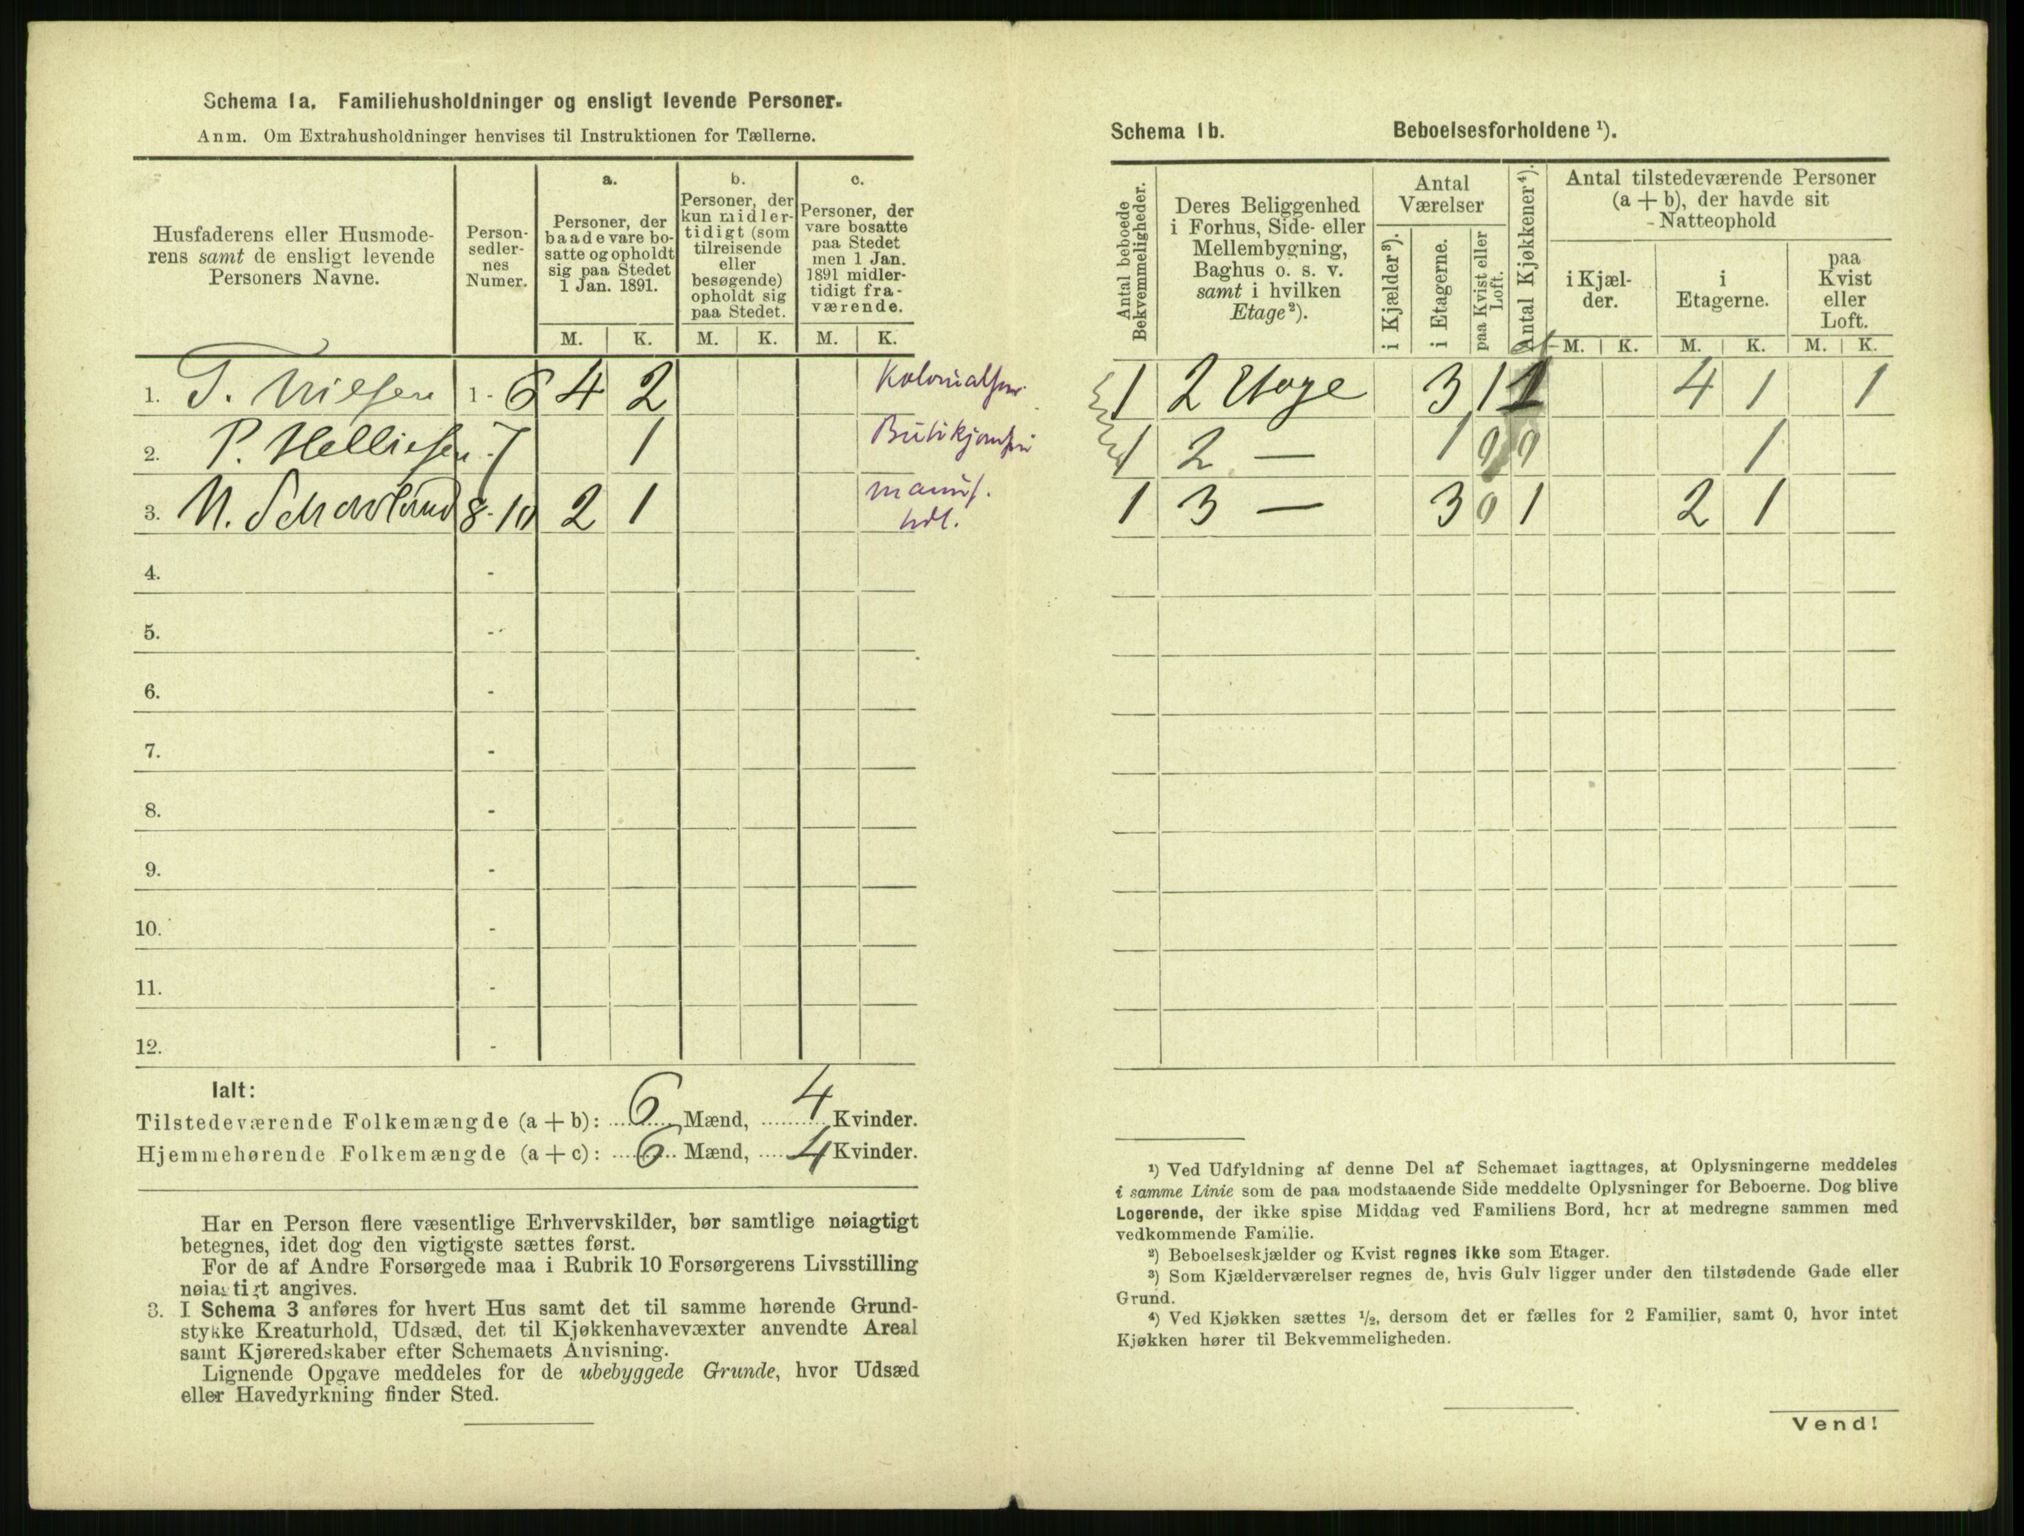 Schema 1a. Familiehusholdninger og ensligt levende Personer.
Anm. Om Extrahusholdninger henvises til Instruktionen for Tællerne.
Husfaderens eller Husmode-
rens samt de ensligt levende
Personers Navne.
Person-
sedler-
nes
Numer.
a.
Personer, der
baade vare bo-
satte og opholdt
sig paa Stedet
1 Jan. 1891.
b.
Personer, der
kun midler-
tidigt (som
tilreisende
eller
besøgende)
opholdt sig
paa Stedet.
c.
Personer, der
vare bosatte
paa Stedet
men 1 Jan.
1891 midler-
tidigt fra-
værende.
M. K. M. K. M. K.
1. T. Nielsen 1 - 6 4 2
2. P. Helliesen - 7 1
3. N. Schavland 8 - 10 2 1 manuf.
hdl.
4. -
5. -
6. -
7. -
8. -
9. -
10. -
11. -
12. -
Ialt:
Tilstedeværende Folkemængde (a + b): 6 Mænd, 4 Kvinder.
Hjemmehørende Folkemængde (a + c): 6 Mænd, 4 Kvinder.
Har en Person flere væsentlige Erhvervskilder, bør samtlige nøiagtigt
betegnes, idet dog den vigtigste sættes først.
For de af Andre Forsørgede maa i Rubrik 10 Forsørgerens Livsstilling
nøiagtigt angives.
3. I Schema 3 anføres for hvert Hus samt det til samme hørende Grund-
stykke Kreaturhold, Udsæd, det til Kjøkkenhavevæxter anvendte Areal
samt Kjøreredskaber efter Schemaets Anvisning.
Lignende Opgave meddeles for de ubebyggede Grunde, hvor Udsæd
eller Havedyrkning finder Sted.
Schema 1b. Beboelsesforholdene ¹).
Antal beboede
Bekvemmeligheder.
Deres Beliggenhed
i Forhus, Side- eller
Mellembygning,
Baghus o. s. v.
samt i hvilken
Etage²).
Antal
Værelser
i Kjælder³).
i Etagerne.
paa Kvist eller
Loft.
Antal Kjøkkener⁴).
Antal tilstedeværende Personer
(a + b), der havde sit
Natteophold
i Kjæl-
der.
i
Etagerne.
paa
Kvist
eller
Loft.
M. K. M. K. M. K.
1 2 Etage 3 1 1 4 1 1
1 2 — 1 0 0 1
1 3 — 3 0 1 2 1
¹) Ved Udfyldning af denne Del af Schemaet iagttages, at Oplysningerne meddeles
i samme Linie som de paa modstaaende Side meddelte Oplysninger for Beboerne. Dog blive
Logerende, der ikke spise Middag ved Familiens Bord, her at medregne sammen med
vedkommende Familie.
²) Beboelseskjælder og Kvist regnes ikke som Etager.
³) Som Kjælderværelser regnes de, hvis Gulv ligger under den tilstødende Gade eller
Grund.
⁴) Ved Kjøkken sættes ½, dersom det er fælles for 2 Familier, samt 0, hvor intet
Kjøkken hører til Bekvemmeligheden.
Vend!